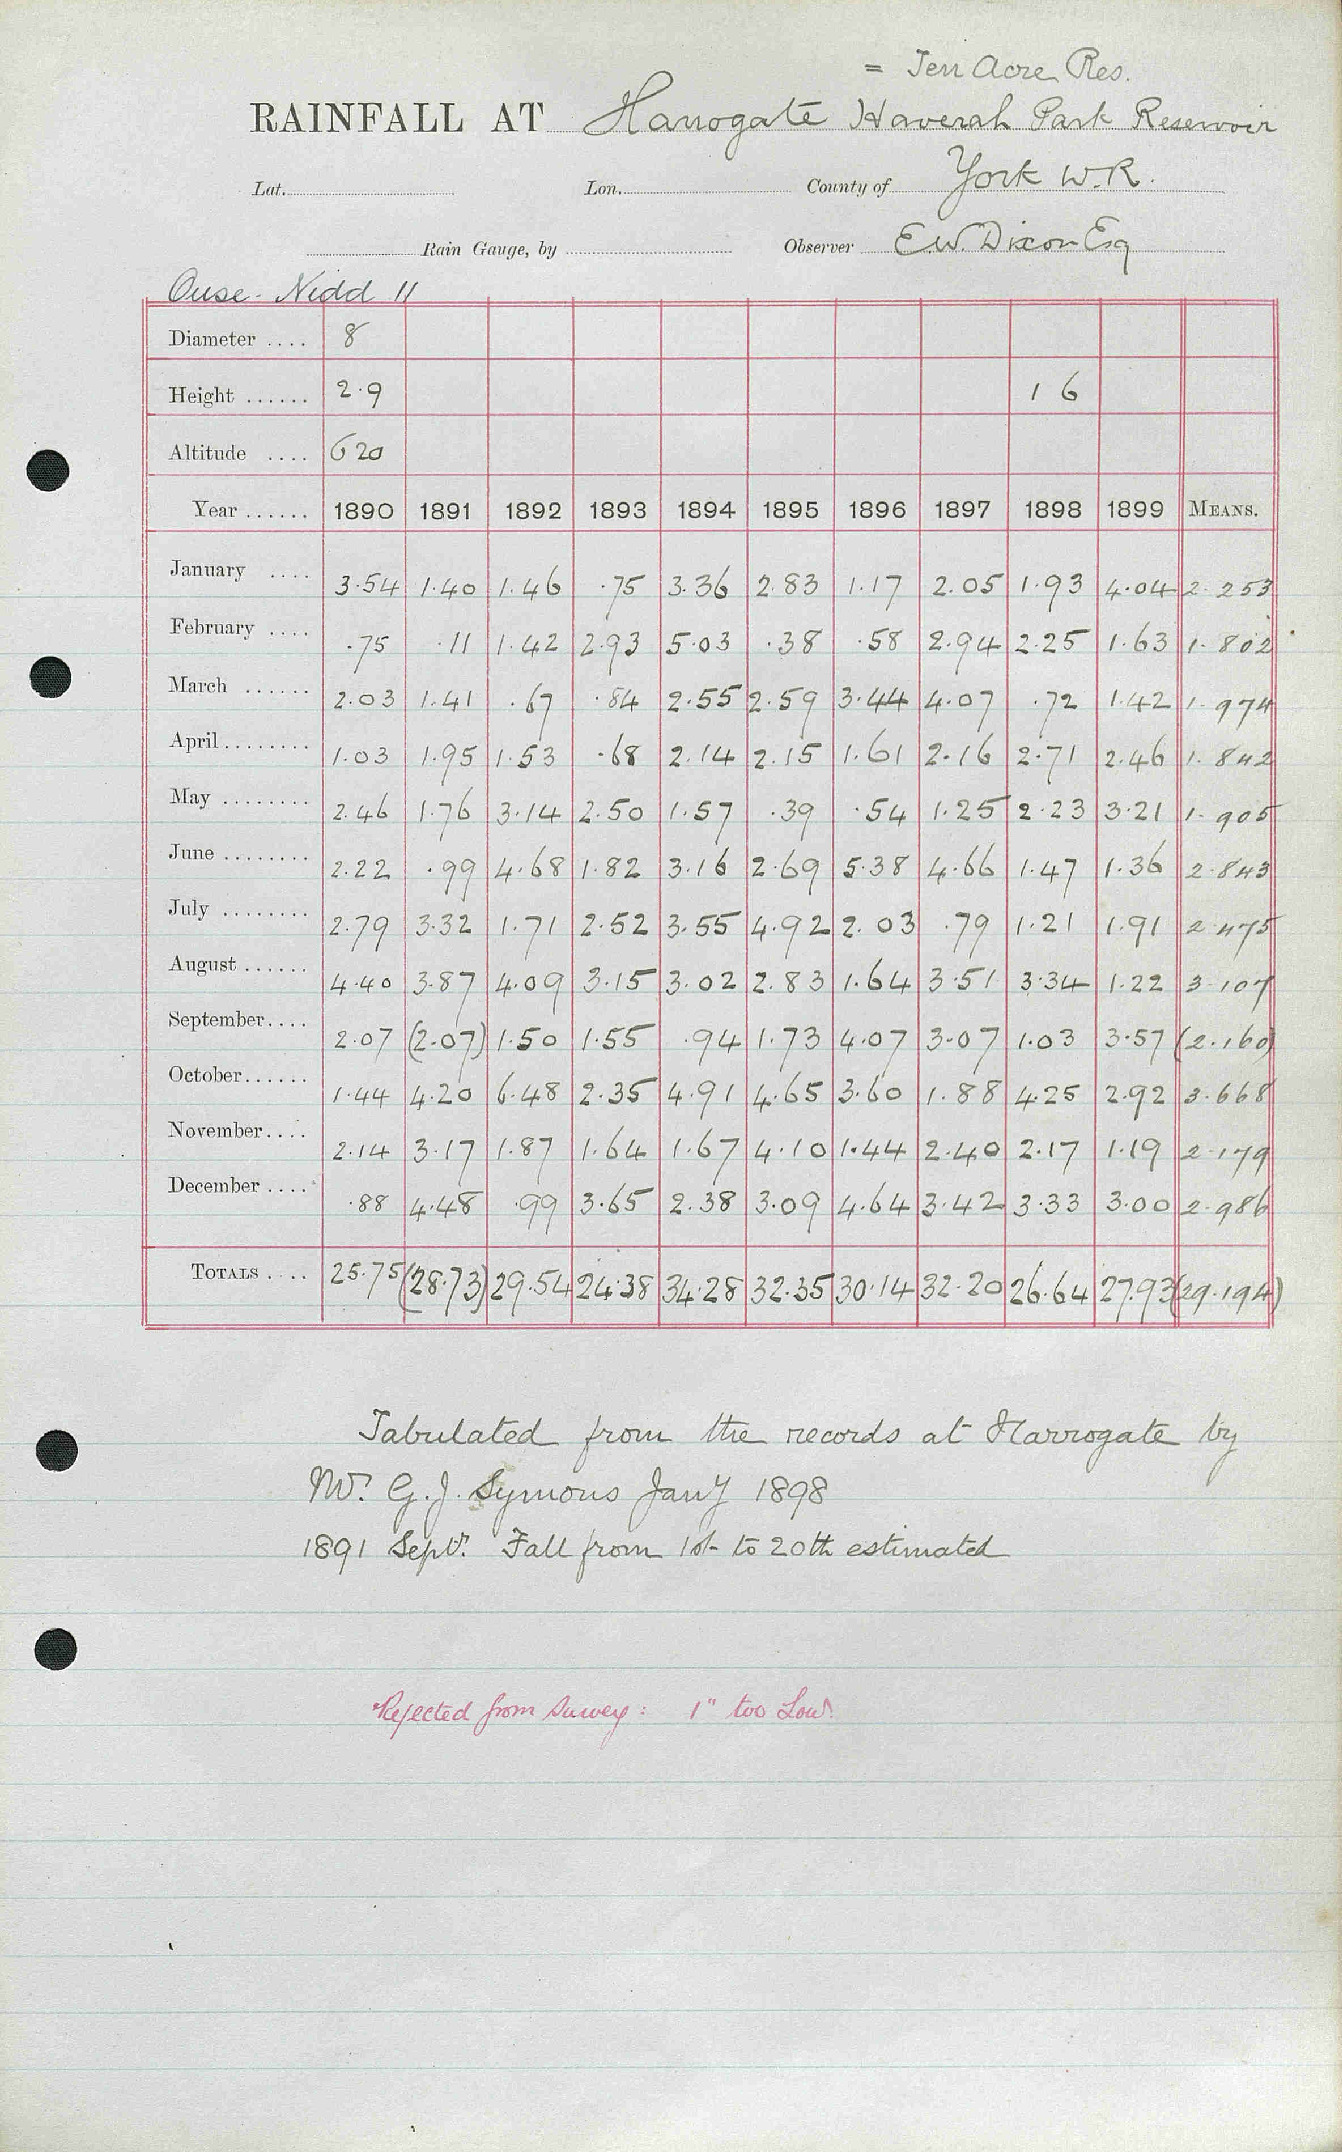 = Ten Acre Res.
RAINFALL AT Harrogate Haverah Park Reservoir
Lat. Lon. County of York W.R.
Rain Gauge, by Observer E.W. Dixon Esq
Ouse-Nidd 11
Diameter .... 8
Height ...... 2.9 1 6
Altitude .... 620
Year ...... 1890 1891 1892 1893 1894 1895 1896 1897 1898 1899 MEANS.
January .... 3.54 1.40 1.46 .75 3.36 2.83 1.17 2.05 1.93 4.04 2.253
February .... .75 .11 1.42 2.93 5.03 .38 .58 2.94 2.25 1.63 1.802
March ...... 2.03 1.41 .67 .84 2.55 2.59 3.44 4.07 .72 1.42 1.974
April ........ 1.03 1.95 1.53 .68 2.14 2.15 1.61 2.16 2.71 2.46 1.842
May ........ 2.46 1.76 3.14 2.50 1.57 .39 .54 1.25 2.23 3.21 1.905
June ........ 2.22 .99 4.68 1.82 3.16 2.69 5.38 4.66 1.47 1.36 2.843
July ........ 2.79 3.32 1.71 2.52 3.55 4.92 2.03 .79 1.21 1.91 2.475
August ...... 4.40 3.87 4.09 3.15 3.02 2.83 1.64 3.51 3.34 1.22 3.107
September.... 2.07 (2.07) 1.50 1.55 .94 1.73 4.07 3.07 1.03 3.57 (2.160)
October...... 1.44 4.20 6.48 2.35 4.91 4.65 3.60 1.88 4.25 2.92 3.668
November.... 2.14 3.17 1.87 1.64 1.67 4.10 1.44 2.40 2.17 1.19 2.179
December .... .88 4.48 .99 3.65 2.38 3.09 4.64 3.42 3.33 3.00 2.986
TOTALS .... 25.75 (28.73) 29.54 24.38 34.28 32.35 30.14 32.20 26.64 27.93 (29.194)
Tabulated from the records at Harrogate by
Mr. G.J. Symons Jany 1898
1891 Septr. Fall from 1st to 20th estimated
Rejected from Survey: 1" too Low.